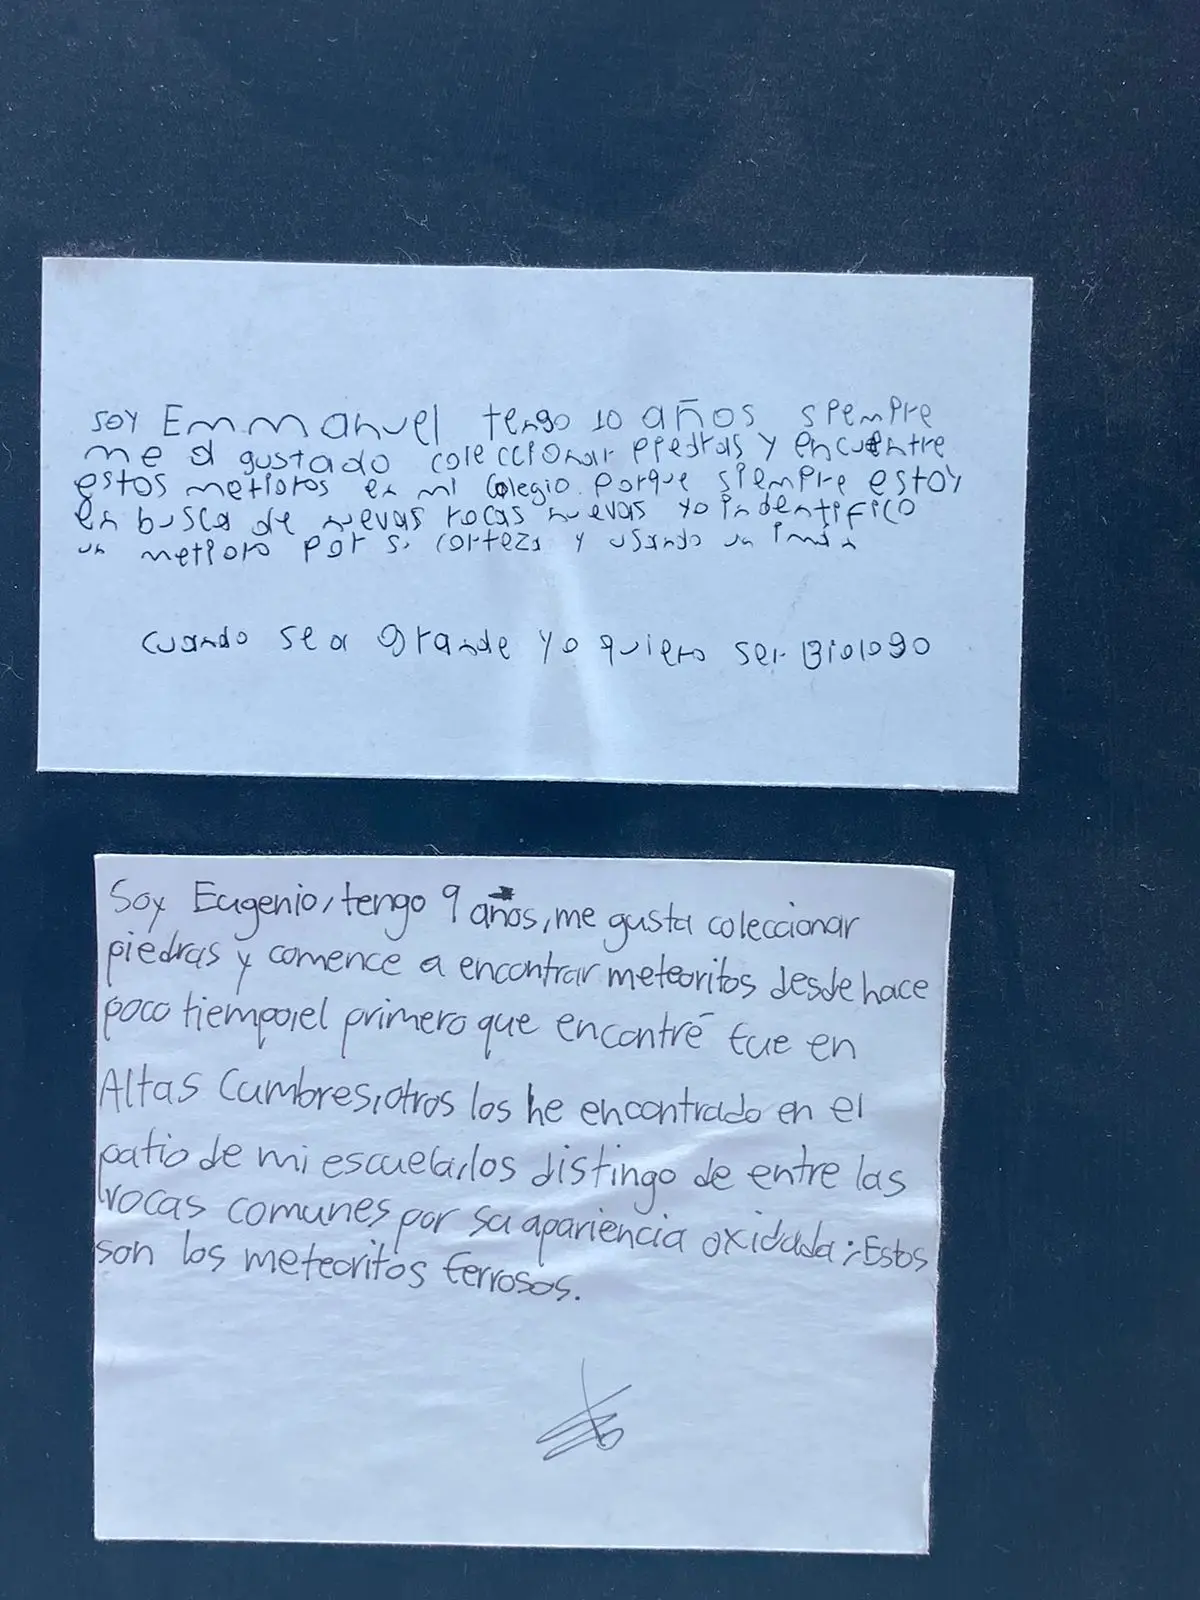 soy Emmanuel tengo 10 años siempre
me a gustado coleccionar piedras y encuentre
estos metioros en mi colegio. porque siempre estoy
en busca de nuevas rocas nuevas yo indentifico
un metioro por su corteza y usando un iman
cuando sea grande yo quiero ser Biologo
Soy Eugenio, tengo 9 años, me gusta coleccionar
piedras y comence a encontrar meteoritos desde hace
poco tiempo, el primero que encontré fue en
Altas Cumbres, otros los he encontrado en el
patio de mi escuela, los distingo de entre las
rocas comunes por su apariencia oxidada; Estos
son los meteoritos ferrosos.